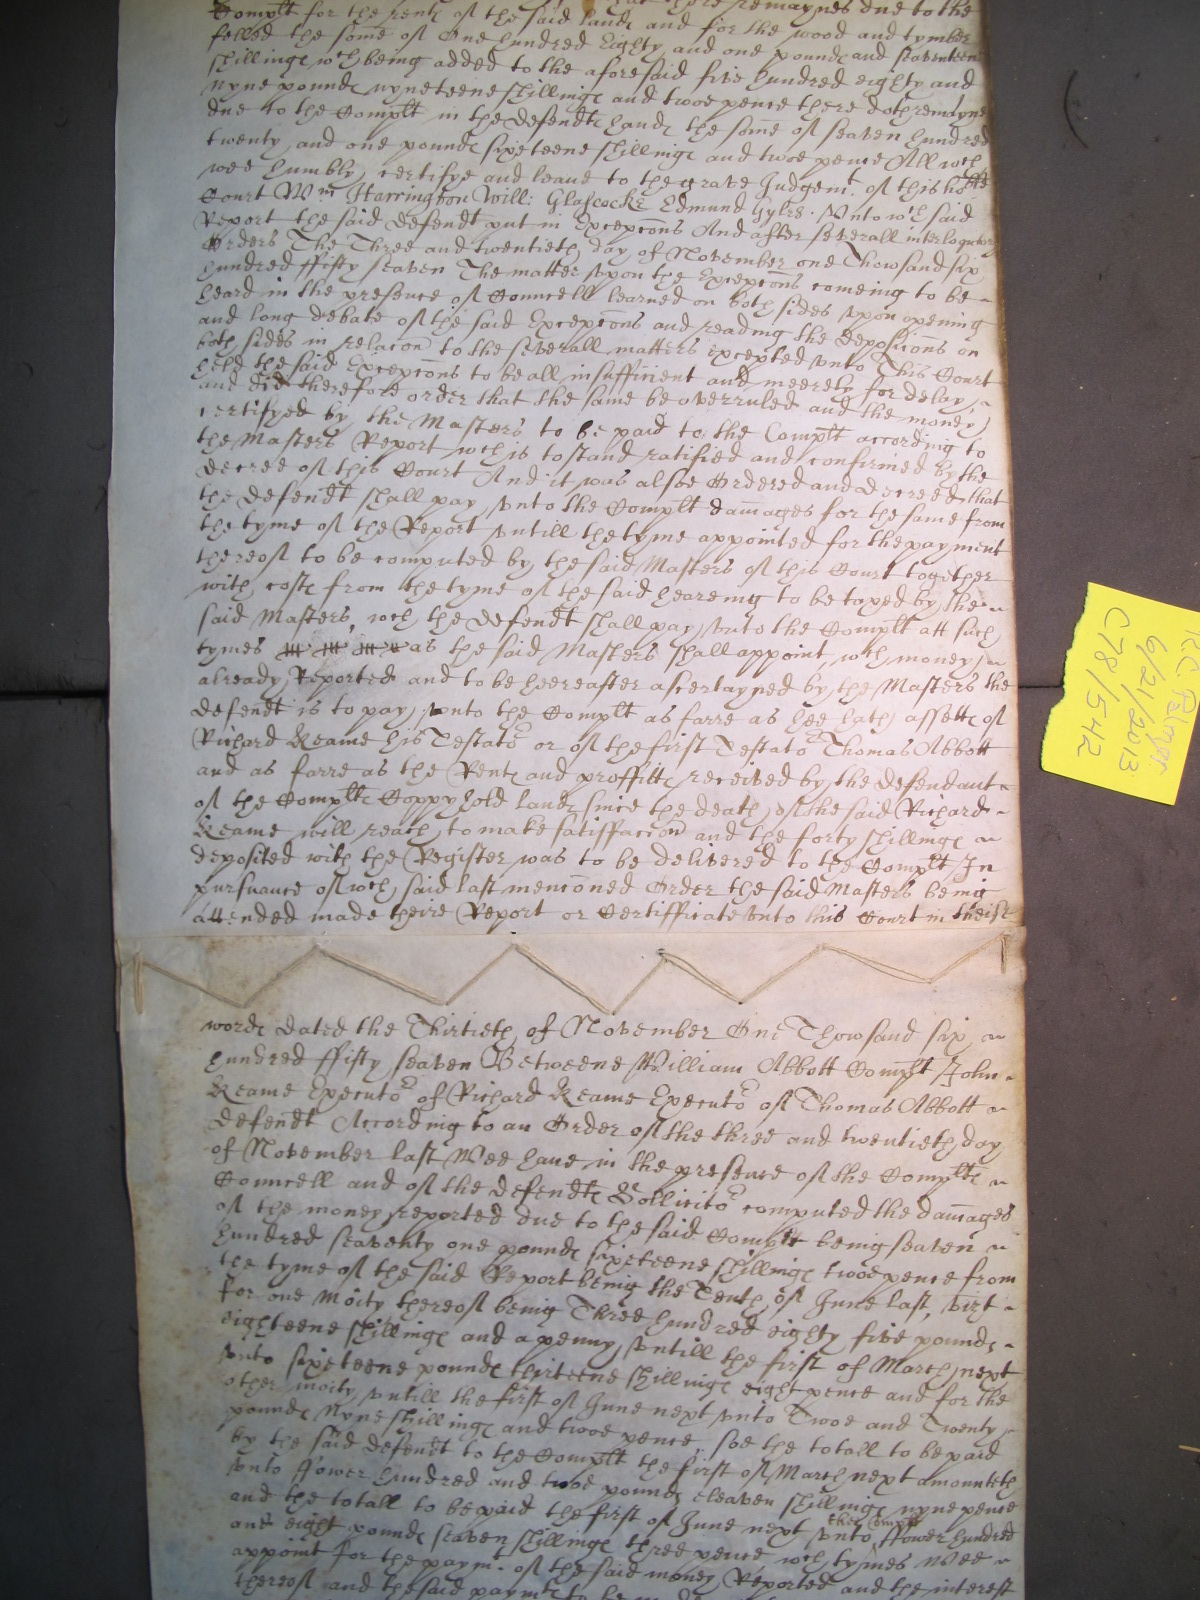 Complt for the rents of the said lands and for the wood and tymber
felled the some of One hundred Eighty and one pounds and seaventeene
shillings wch being added to the aforesaid five hundred eighty and
nyne pounds nyneteene shillings and twoe pence there doth remayne
due to the Complt in the defendts hands the some of seaven hundred
twenty and one pounds sixeteene shillings and twoe pence All wch
wee humbly certifye and leave to the grave Judgemt. of this hoble
Court Wm Harrington Will: Glascocke Edmund Gyles. Unto wch said
Report the said defendt put in Excepcons And after severall interlocutory
Orders The Three and twentieth day of November one Thowsand six
hundred ffifty seaven The matter upon the Excepcons comeing to be
heard in the presence of Councell learned on both sides upon opening
and long debate of the said Excepcons and reading the deposicons on
both sides in relacon to the severall matters excepted unto This Court
held the said Excepcons to be all insufficient and meerely for delay,
and did therefore order that the same be overruled and the money
certifyed by the Masters to be paid to the Complt according to
the Masters Report wch is to stand ratified and confirmed by the
decree of this Court And it was alsoe Ordered and decreed that
the defendt shall pay unto the Complt damages for the same from
the tyme of the Report untill the tyme appointed for the payment
thereof to be computed by the said Masters of this Court together
with costs from the tyme of the said heareing to be taxed by the
said Masters, wch the defendt shall pay unto the Complt att such
tymes as the said Masters shall appoint, wch money
already Reported and to be heereafter ascertayned by the Masters the
defendt is to pay unto the Complt as farre as hee hath assetts of
Richard Keame his Testator or of the first Testator Thomas Abbott
and as farre as the Rents and proffitts received by the defendant
of the Complts Coppyhold lands since the death of the said Richard
Keame will reach to make satisfaccon and the forty shillings
deposited with the Register was to be delivered to the Complt In
pursuance of wch said last mencioned Order the said Masters being
attended made theire Report or Certifficate unto this Court in theise
words dated the Thirtieth of November One Thowsand six
hundred ffifty seaven Betweene William Abbott Complt John
Keame Executor of Richard Keame Executor of Thomas Abbott
defendt According to an Order of the three and twentieth day
of November last Wee have in the presence of the Complts
Councell and of the defendts Sollicitor computed the damages
of the money reported due to the said Complt being seaven
hundred seaventy one pounds sixeteene shillings twoe pence from
the tyme of the said Report being the Tenth of June last, vizt
for one moity thereof being Three hundred eighty five pounds
eighteene shillings and a penny, untill the first of March next
unto sixeteene pounds thirteene shillings eight pence and for the
other moity untill the first of June next unto Twoe and Twenty
pounds Nyne shillings and twoe pence, soe the totall to be paid
by the said defendt to the Complt the first of March next amounteth
unto ffower hundred and twoe pounds eleaven shillings nyne pence
and the totall to be paid the first of June next unto the Complt ffower hundred
and eight pounds seaven shillings three pence wch tymes Wee
appoint for the paymt. of the said money Reported and the interest
thereof and the said paymts to be made
R.C. Palmer
6/21/2013
C78/542